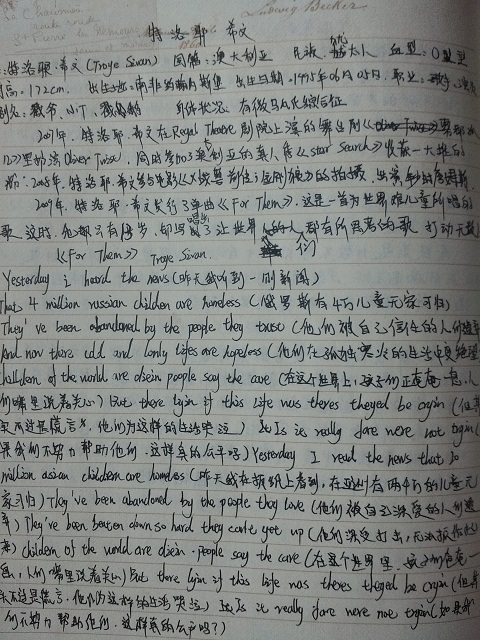 特洛耶 希文
Ludwig Becker
:特洛耶·希文(Troye Sivan) 国籍:澳大利亚 民族:犹太人 血型:O型
高:172cm. 出生地:南非约翰内斯堡 出生日期:1995年06月05日. 职业:歌手、演员
别名:戳爷、小T、 身体状况:有微马凡氏综合征
2007年,特洛耶·希文在Regal Theatre剧院上演的舞台剧《
里的 Oliver Twist),同时参加了澳利亚的真人秀《Star Search》收获一大堆的
2008年,特洛耶·希文参与电影《X战警前传:金刚狼》的拍摄,
2009年,特洛耶·希文发行了单曲《For Them》,这是一首为世界难儿童所唱的
歌,这时,他都只有13岁,却写唱了让世界的人们都有所思考的歌,打动无数
《For Them》 Troye Sivan.
Yesterday i heard the news (昨天我听到一则新闻)
That 4 million russian children are homeless (俄罗斯有4百万儿童无家可归)
They've been abandoned by the people they trust (他们被自己信任的人们
And now there cold and lonly lifes are hopeless (他们在孤独寒冷的生活中
of the world are disein people say the care (在这个世界上,孩子们正奄奄一息,人
们嘴里说着关心) But there lyin if this life was theres theyed be cryin (但其
实不过是谎言,他们为这样的生活哭泣) Is is really fare were not tryin(
果我们不努力帮助他们,这样真的公平吗) Yesterday I read the news that 20
million asian children are homeless (昨天我在报纸上看到,在亚洲有两千万的儿童无
家可归) They've been abandoned by the people they love (他们被自己深爱的人们遗
弃) They've been beaten down so hard they can't get up (他们深受打击,无法振作
来) Children of the world are disein. people say the care (在这个世界里,孩子们奄奄一
息,人们嘴里说着关心) But there lyin if this life was theres theyed be cryin (但其
实不过是谎言,他们为这样的生活哭泣) Is is really fare were not tryin (如果我
们不努力帮助他们,这样真的公平吗?)